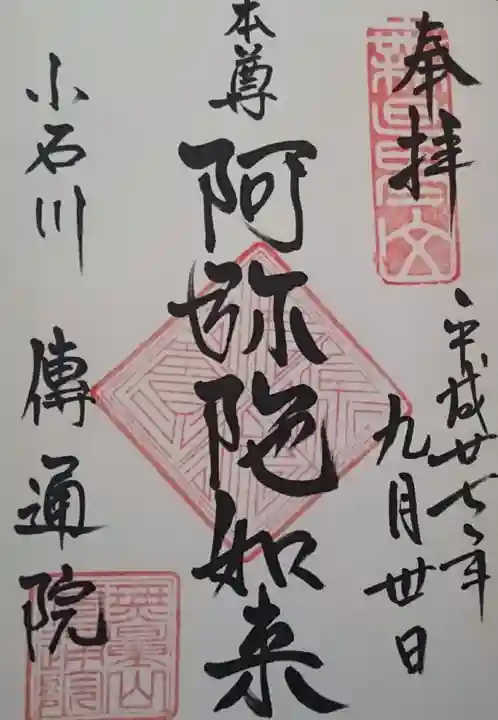 奉拝
平成廿七年
九月丗日
本尊
阿弥陀如来
小石川 傳通院
無量山